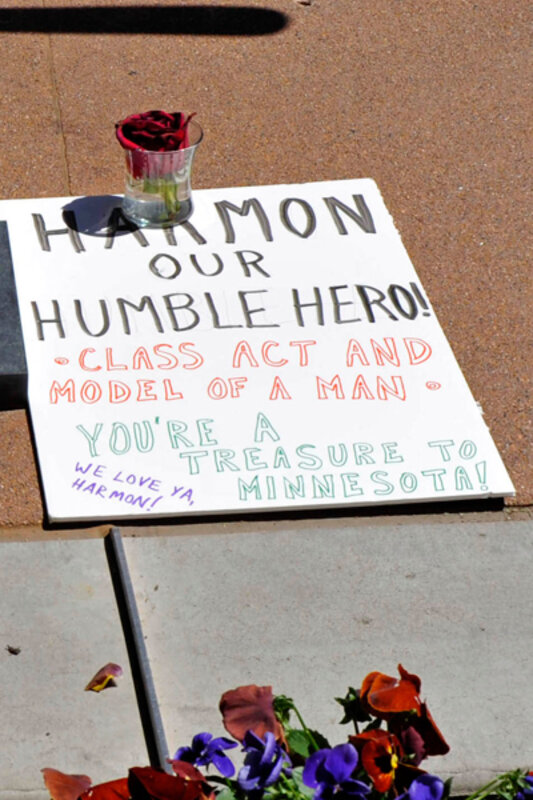 HARMON
OUR
HUMBLE HERO!
• CLASS ACT AND
MODEL OF A MAN •
YOU'RE A
TREASURE TO
MINNESOTA!
WE LOVE YA,
HARMON!